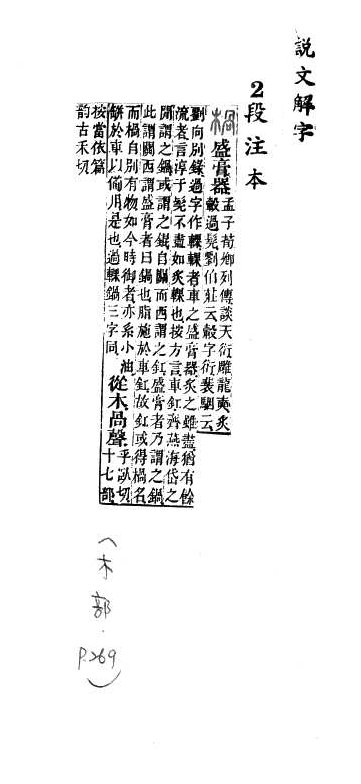 說文解字
2段注本
楇
盛膏器
孟子荀卿列傳談天衍雕龍奭炙
轂過髡劉伯莊云轂字衍裴駰云
劉向別錄過字作輠輠者車之盛膏器炙之雖盡猶有餘
流者言淳于髡不盡如炙輠也按方言車釭齊燕海岱之
閒謂之鍋或謂之錕自關而西謂之釭盛膏者乃謂之鍋
此謂關西謂盛膏者曰鍋也脂施於車釭故釭或得楇名
而楇自別有物如今時御者亦系小油
缾於車以僃用是也過輠鍋三字同
從木咼聲
乎臥切
十七部
按當依篇
韵古禾切
(木部.
P.269)